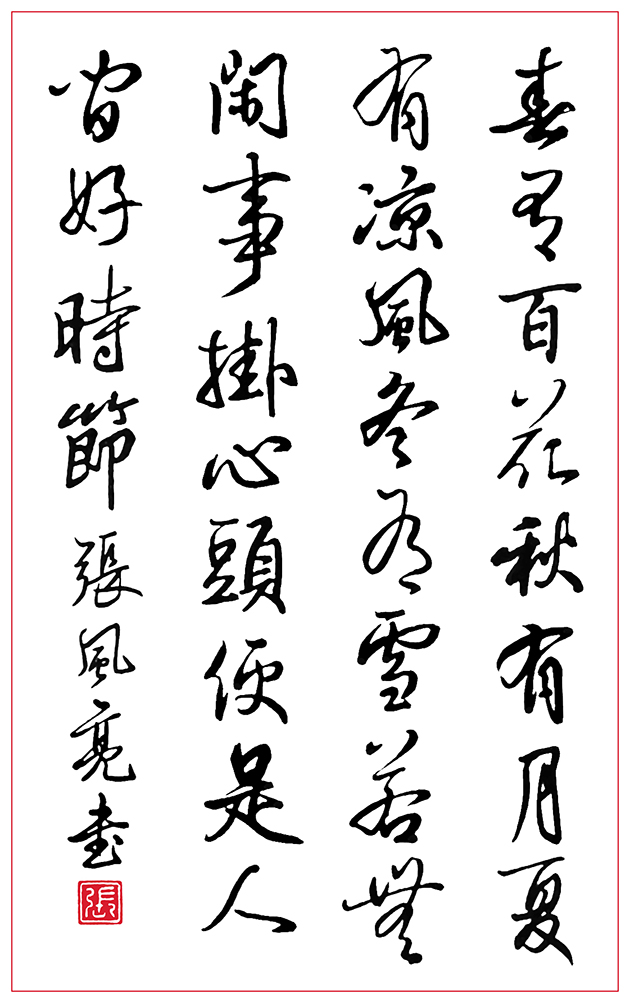 春有百花秋有月夏
有凉風冬有雪若無
閑事掛心頭便是人
間好時節張風亮書
張